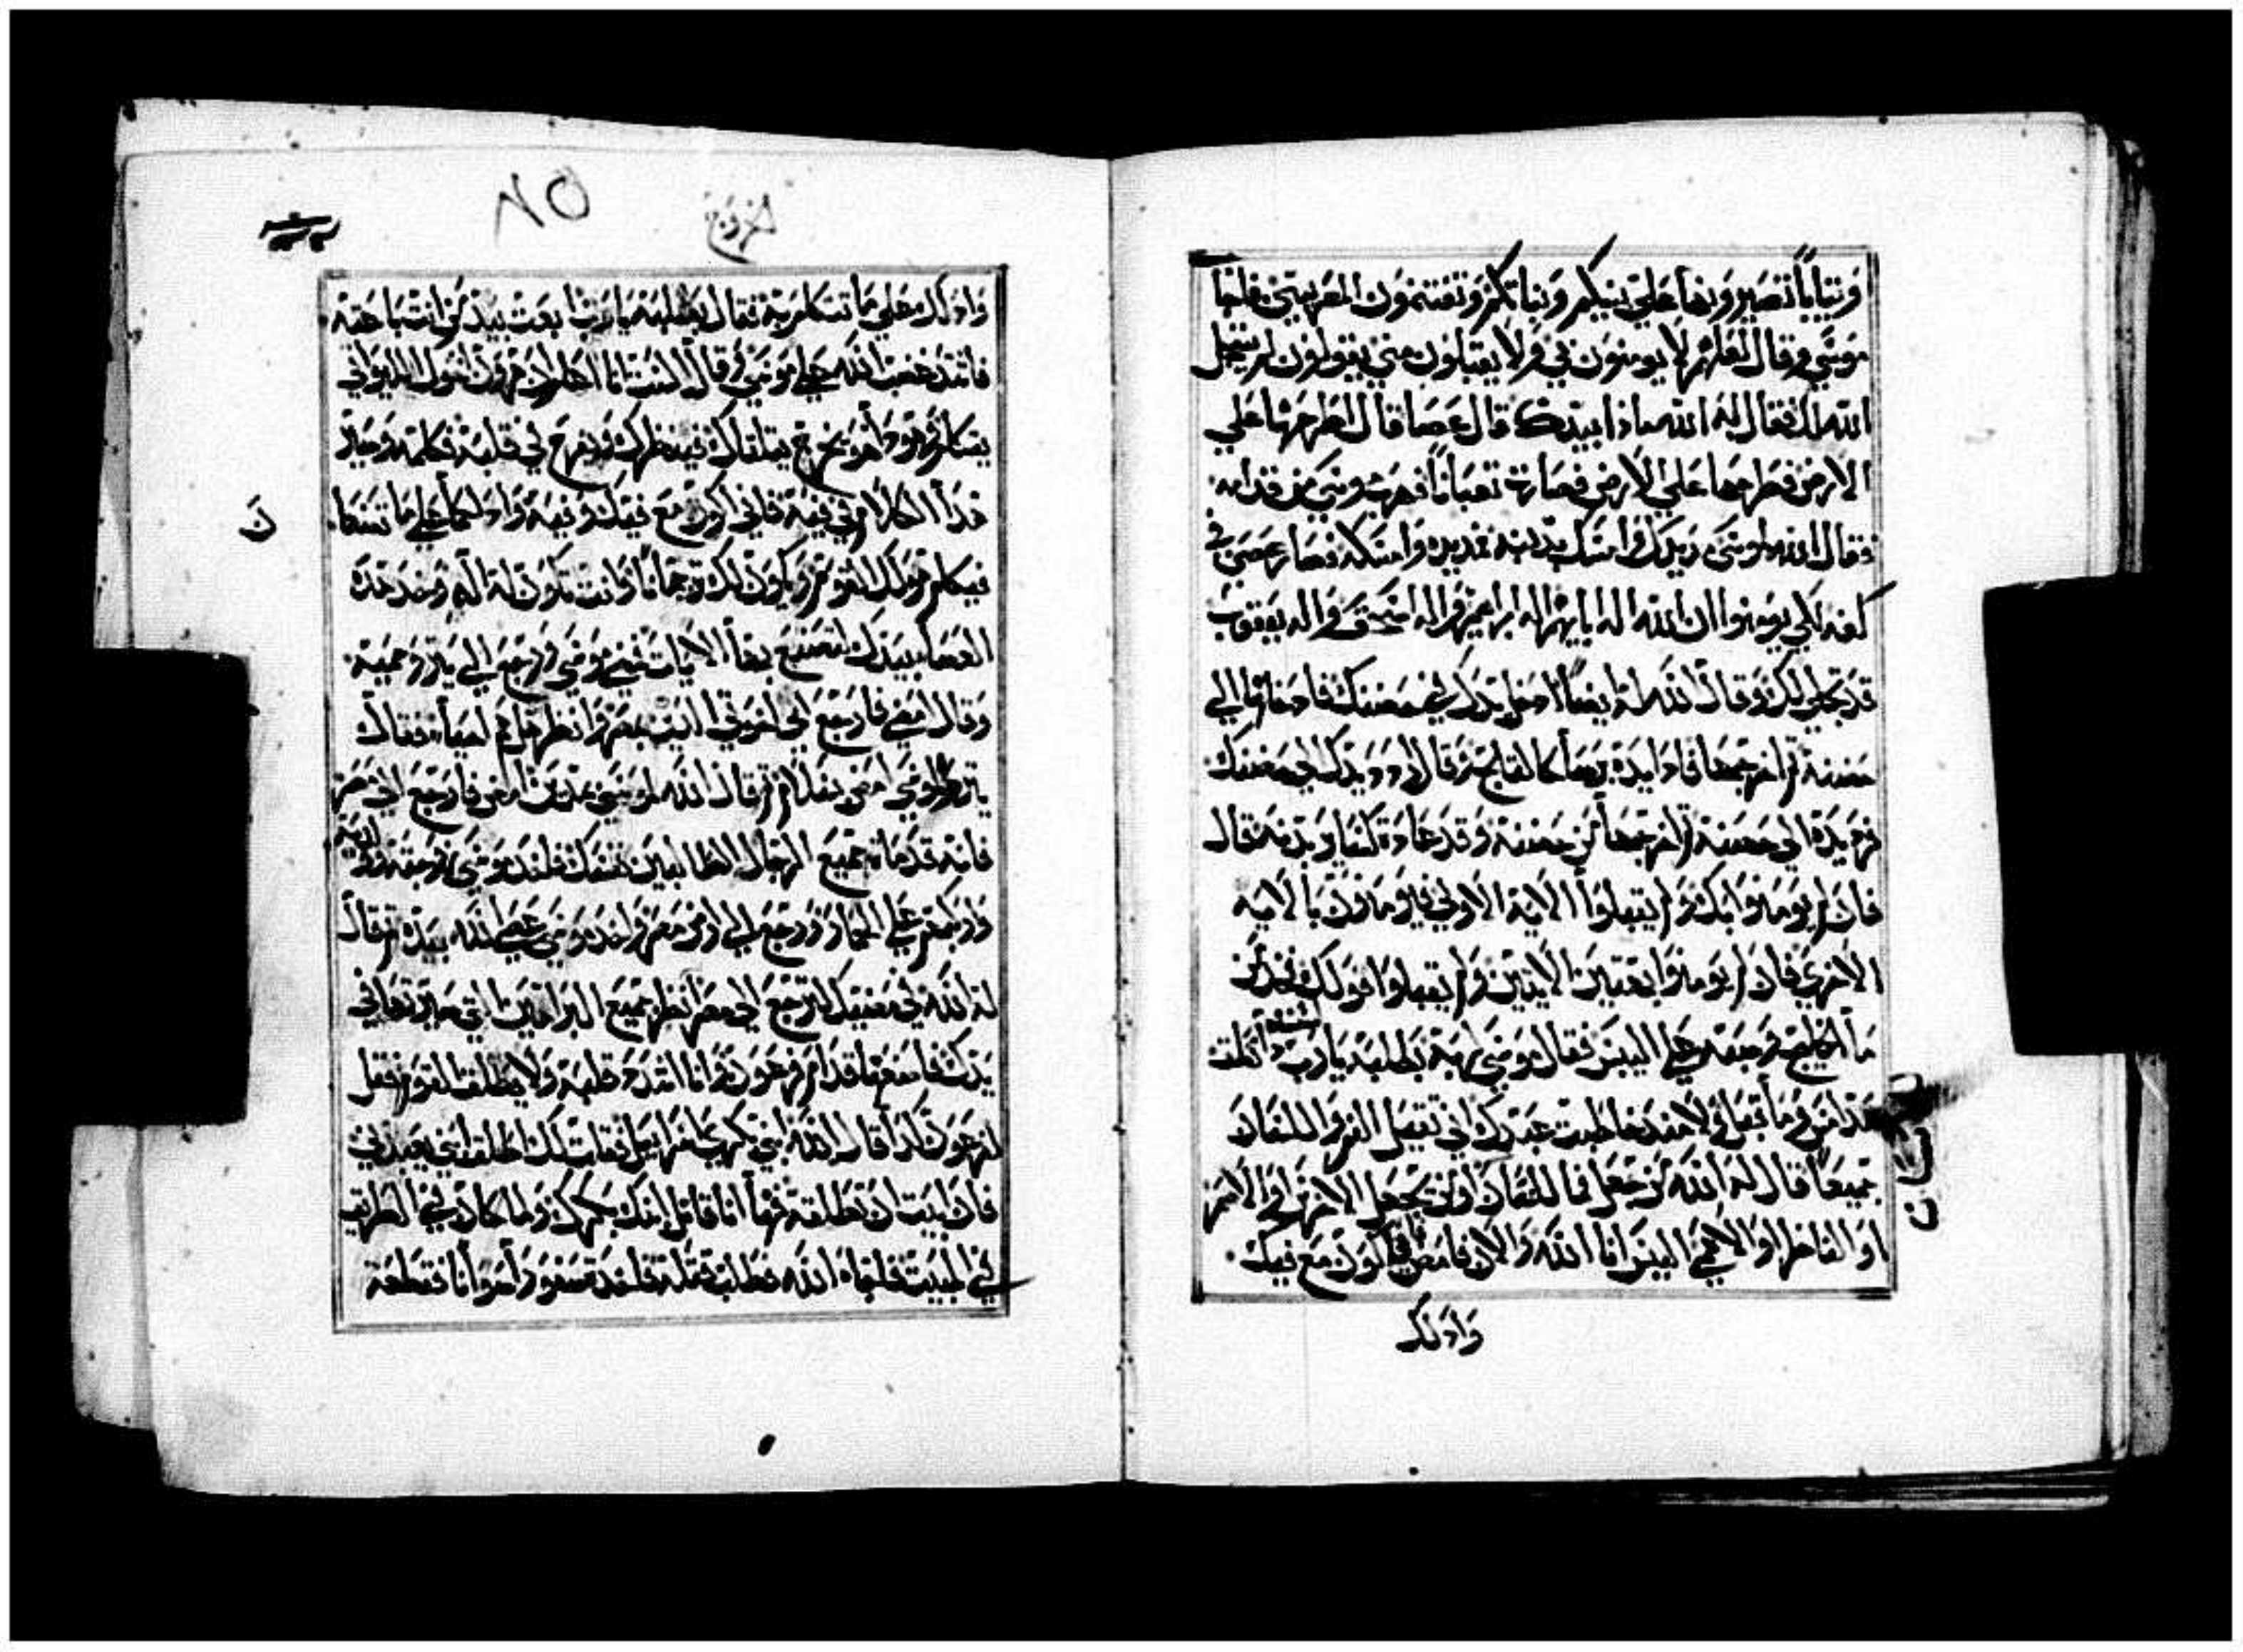 وثيابا تصيرونها علي بنيكم وبناتكم وتغتنمون المصريين فاجا
موسي وقال لعلهم لا يومنون بي ولا يقبلون مني يقولون لم يتجل
الله لك فقال له الله ماذا بيدك قال عصا قال اطرحها علي
الارض فطرحها علي الارض فصارت ثعبانا فهرب موسي من قدامه
فقال الله لموسي مد يدك وامسك بذنبه فمد يده وامسكه فصار عصى في
كفه لكي يومنوا ان الله اله ابايهم اله ابراهيم واله اسحق واله يعقوب
قد تجلي لك وقال الله له ايضا ادخل يدك في حضنك فادخلها الي
حضنه ثم اخرجها فاذا يده برصا كالثلج ثم قال له رد يدك الي حضنك
فرد يده الي حضنه ثم اخرجها من حضنه وقد عادت كلحم بدنه قال
فان لم يومنوا بك ولم يقبلوا الاية الاولي فيومنون بالاية
الاخري فان لم يومنوا بهتين الايتين ولم يقبلوا قولك فخذ من
ما الخليج وصبه علي اليبس فقال موسي لربه بطلبة يا رب لست انطق
منذ امس وما قبل ولا منذ خاطبت عبدك اني ثقيل الفم واللسان
جميعا قال له الله من جعل فما للانسان او من يجعل الاخرس او الاصم
او الناظر او الاعمي اليس انا الله والان فامض فاني اكون مع فيك
وادلك
خروج
٨٥
وادلك علي ما تتكلم به فقال بطلبة يا رب ابعث بيد من انت باعثه
فاشتد غضب الله علي موسي وقال الست انا اعلم ان هرون اخوك الليواني
يتكلم هو وها هو يخرج يتلقاك فينظرك ويفرح في قلبه فكلمه وصير
هذا الكلام في فيه فاني اكون مع فيك وفيه وادلكما علي ما تصنعا
فيكلم هو لك القوم ويكون لك ترجمانا وانت تكون له اله وخذ هذه
العصا بيدك لتصنع بها الايات فمضي موسي ورجع الي يثرو حميه
وقال امضي فارجع الي اخوتي الذين بمصر وانظر هل هم احيا فقال
يثرو لموسي امض بسلام ثم قال الله لموسي بمدين امض فارجع الي مصر
فانه قد مات جميع الرجال الطالبين نفسك فاخذ موسي زوجته وبنيه
واركبهم علي الحمار ورجع الي ارض مصر واخذ موسي عصا الله بيده ثم قال
له الله في مضيك لترجع الي مصر انظر جميع البراهين التي صيرتها في
يدك فاصنعها قدام فرعون وانا اشدد قلبه ولا يطلق القوم فقل
لفرعون كذا قال الله ابني بكري اسرائيل فقلت لك اطلق ابني يعبدني
فان ابيت ان تطلقه فها انا قاتل ابنك بكرك ولما كان في الطريق
في المبيت فلقاه الله فطلب قتله فاخذت صفورا صوانا فقطعت